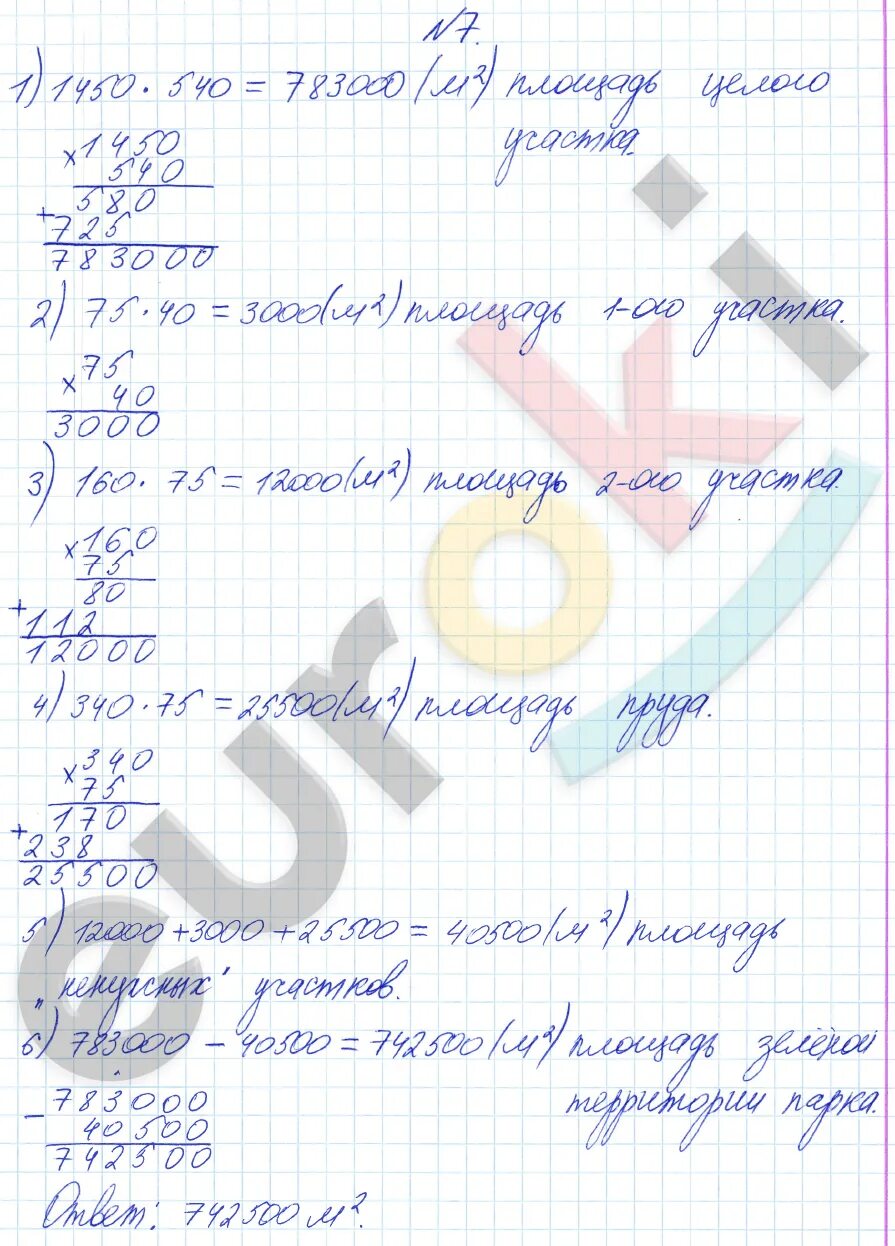 №7.
1) 1450 · 540 = 783000 (м²) площадь целого
участка.
×1450
540
580
+
725
783000
2) 75 · 40 = 3000 (м²) площадь 1-ого участка.
×75
40
3000
3) 160 · 75 = 12000 (м²) площадь 2-ого участка.
×160
75
80
+
112
12000
4) 340 · 75 = 25500 (м²) площадь пруда.
×340
75
170
+
238
25500
5) 12000 + 3000 + 25500 = 40500 (м²) площадь
„ненужных" участков.
6) 783000 – 40500 = 742500 (м²) площадь зелёной
территории парка.
– 783000
40500
742500
Ответ: 742500 м².
euroki